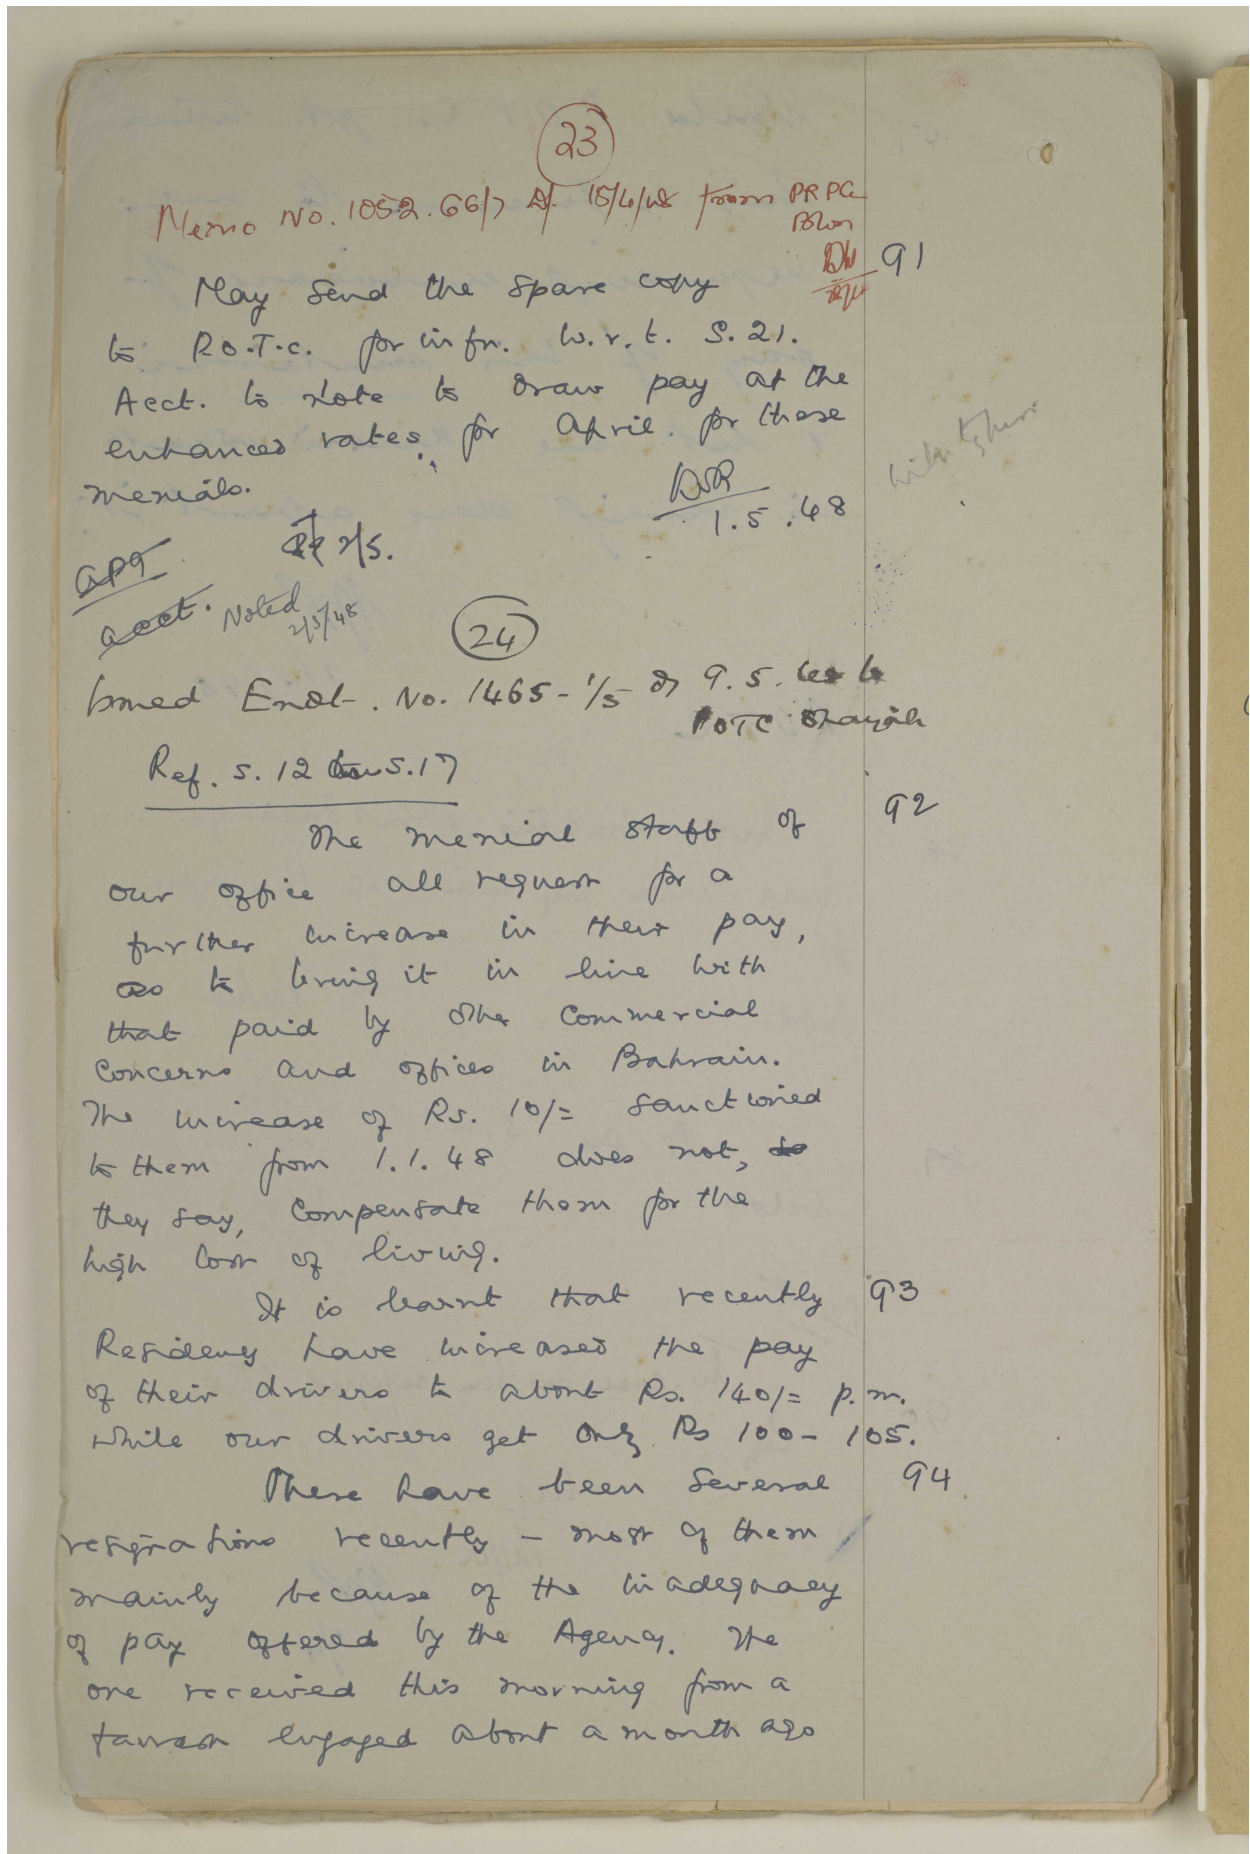 23
Memo No. 1052. 66/7 d/. 15/4/48 from PRPG
91
May send the spare copy
to P.O.T.C. for infn. w.r.t. S.21.
Acct. to note to draw pay at the
enhanced rates, for April. for these
menials.
1.5.48
2/5.
acct. Noted
2/5/48
24
Issued Endt. No. 1465-1/5 d/ 9.5.48 to
POTC Sharjah
Ref. S.12 S.17
92
The menial staff of
our office all request for a
further increase in their pay,
as to bring it in line with
that paid by other commercial
concerns and offices in Bahrain.
The increase of Rs. 10/= sanctioned
to them from 1.1.48 does not,
they say, compensate them for the
high cost of living.
It is learnt that recently 93
Residency have increased the pay
of their drivers to about Rs. 140/= p.m.
while our drivers get only Rs 100 - 105.
There have been several 94
resignations recently - most of them
mainly because of the inadequacy
of pay offered by the Agency. The
one received this morning from a
farrash engaged about a month ago